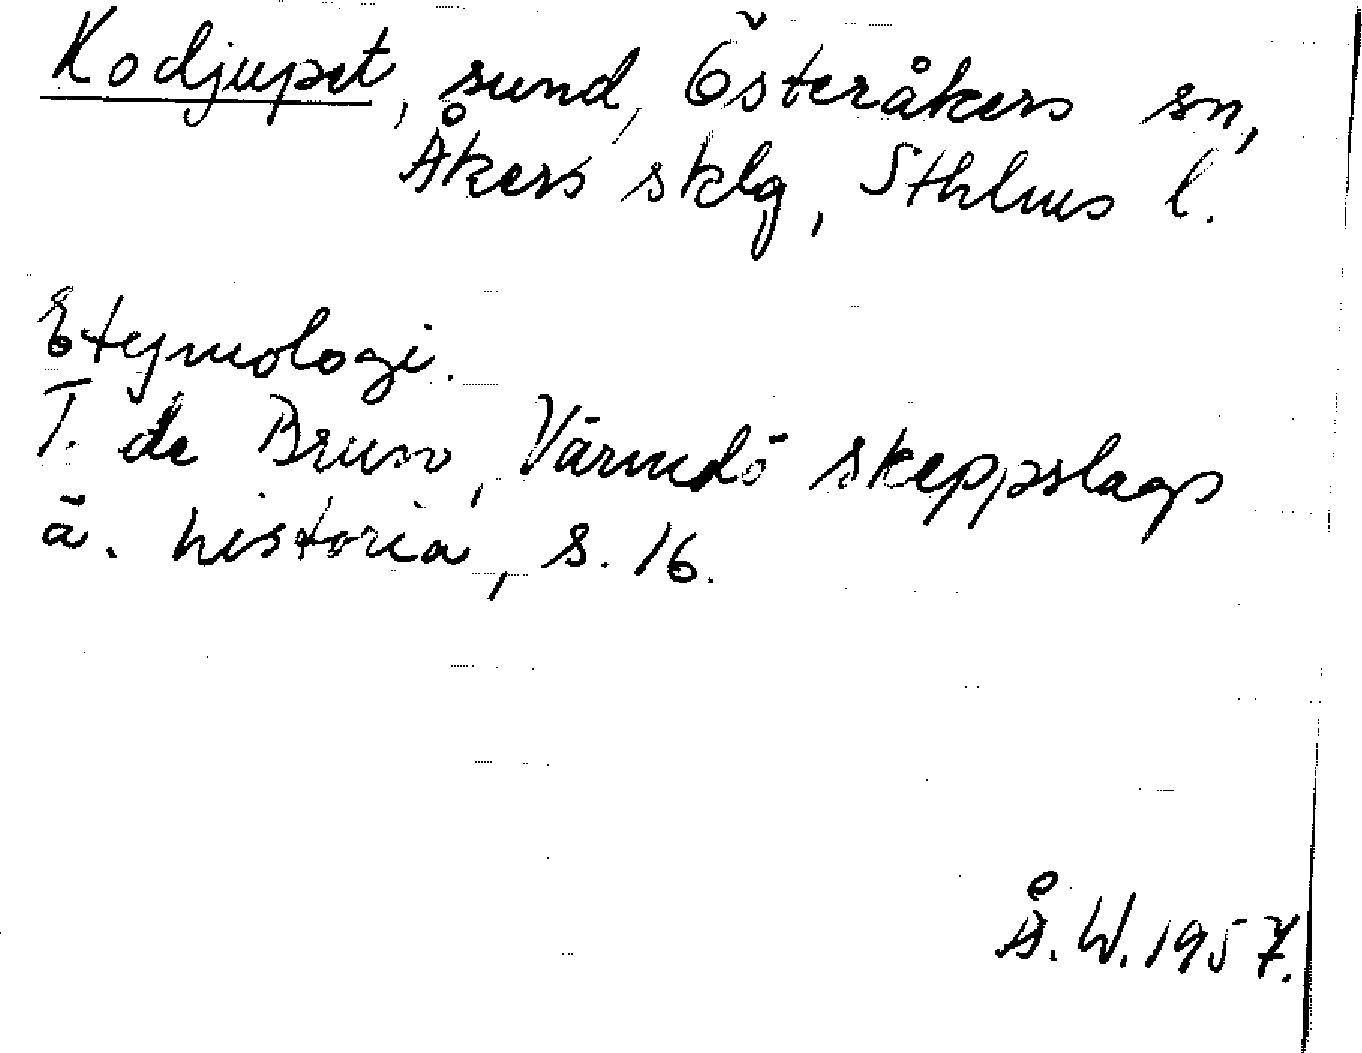 Kodjupet, sund, Österåkers sn,
Åkers sklg, Sthlms l.
Etymologi.
T. de Brun, Värmdö skeppslags
ä. historia, s. 16.
Å. W. 1957.